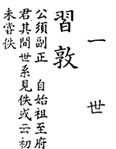 一世
習敦
公須副正 自始祖至府
君其間世系見佚或云初
未嘗佚